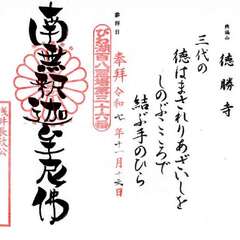 徳勝寺
三代の
徳はまされりあざいしを
しのぶこころで
結ぶ手のひら
参拝日
奉拝 令和七年十一月
びわ湖百八霊場第三十六番
南無釈迦牟尼佛
浅井長政公